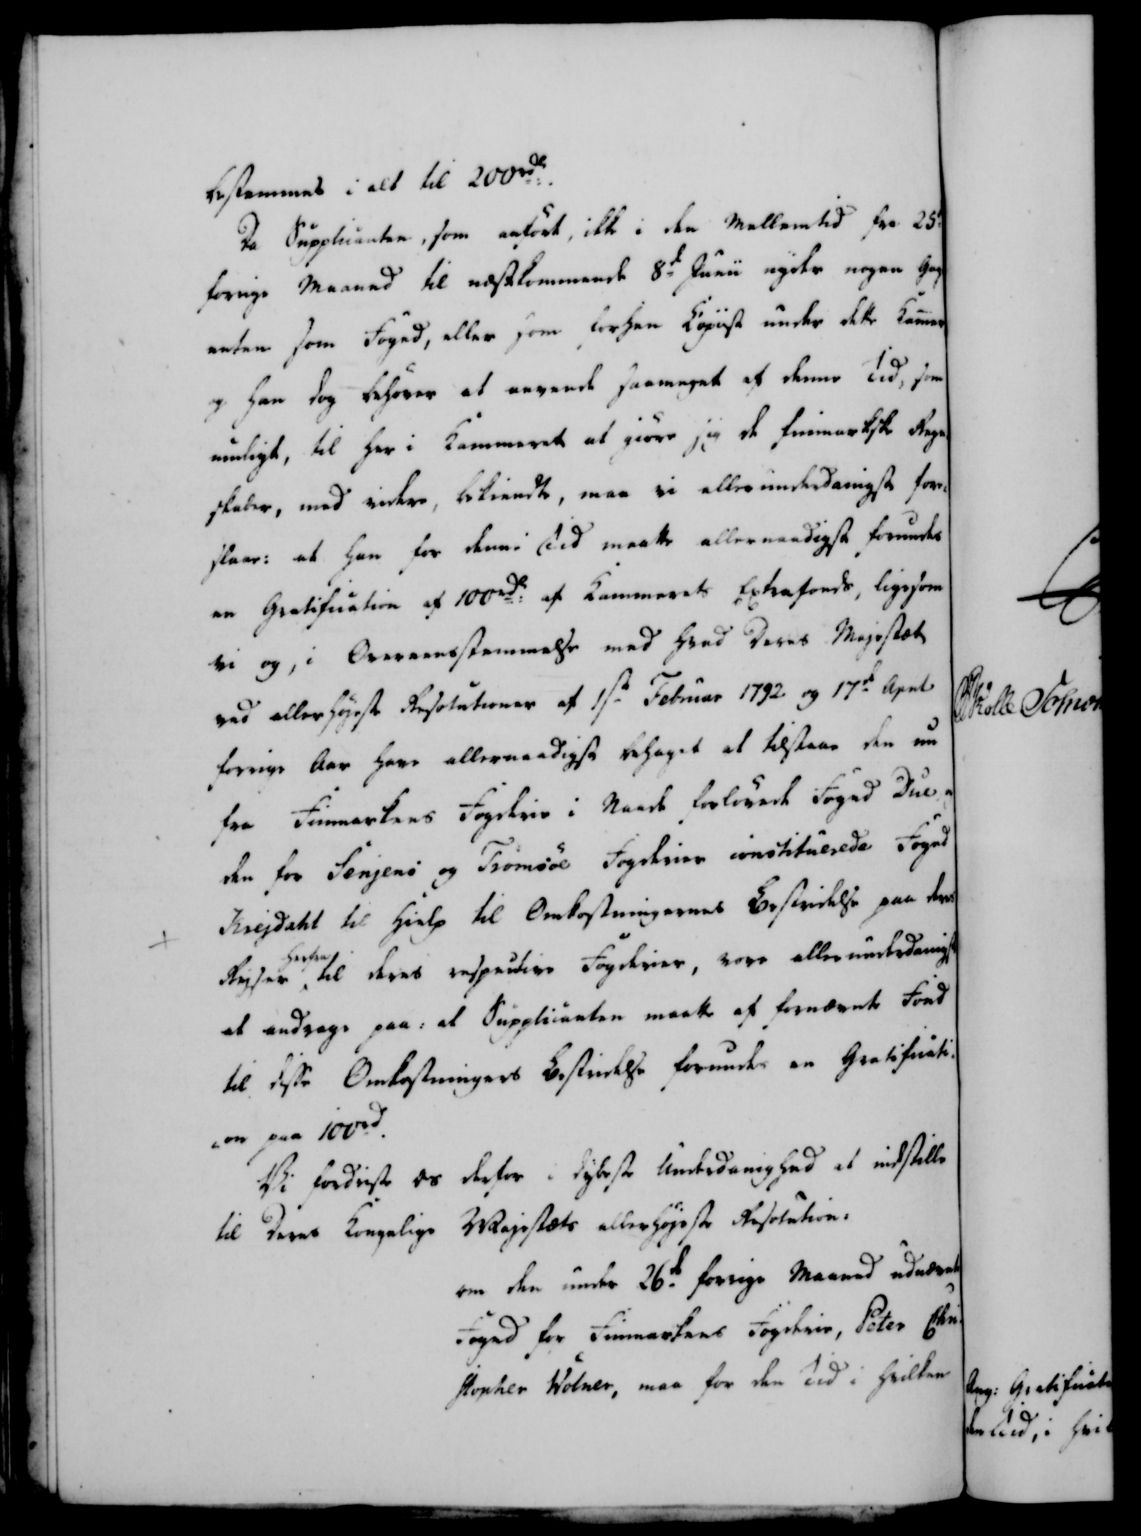 bestemmes i alt til 200rd:
Da Supplicanten, som anført, ikke i den Mellemtid fra 25d
forrige Maaned til næstkommende 8de Junii nyder nogen Gage
enten som Foged, eller som forhen Copiist under dette Kammer
og han dog behøver at anvende saameget af denne Tid, som
mueligt, til her i Kammeret at giøre sig de finmarkske Regn-
skaber, med videre, bekiendte, maa vi allerunderdanigst fore-
slaae: at han for denne Tid maatte allernaadigst forundes
en Gratification af 100rd: af Kammerets Extrafonds, ligesom
vi og, i Overeensstemmelse med hvad Deres Majestæt
ved allerhøjeste Resolutioner af 1ste Februar 1792 og 17de April
forrige Aar have allernaadigst behaget at tilstaae den nu
fra Finmarkens Fogderie i Naade forlovede Foged Due og
den for Senjens og Tromsøe Fogderier constituerede Foged
Krejdahl til Hielp til Omkostningernes Bestridelse paa deres
Rejser herfra til deres respective Fogderier, vove allerunderdanigst
at andrage paa: at Supplicanten maatte af fornævnte Fond
til disse Omkostningers Bestridelse forundes en Gratificati-
on paa 100rd.
Vi fordriste os derfor i dybeste Underdanighed at indstille
til Deres Kongelige Majestæts allerhøjeste Resolution:
om den under 26de forrige Maaned udnævnte
Foged for Finmarkens Fogderie, Peter Chri-
stopher Wolner, maa for den Tid i hvilken
Ang: Gratificati
den Tid, i hvil